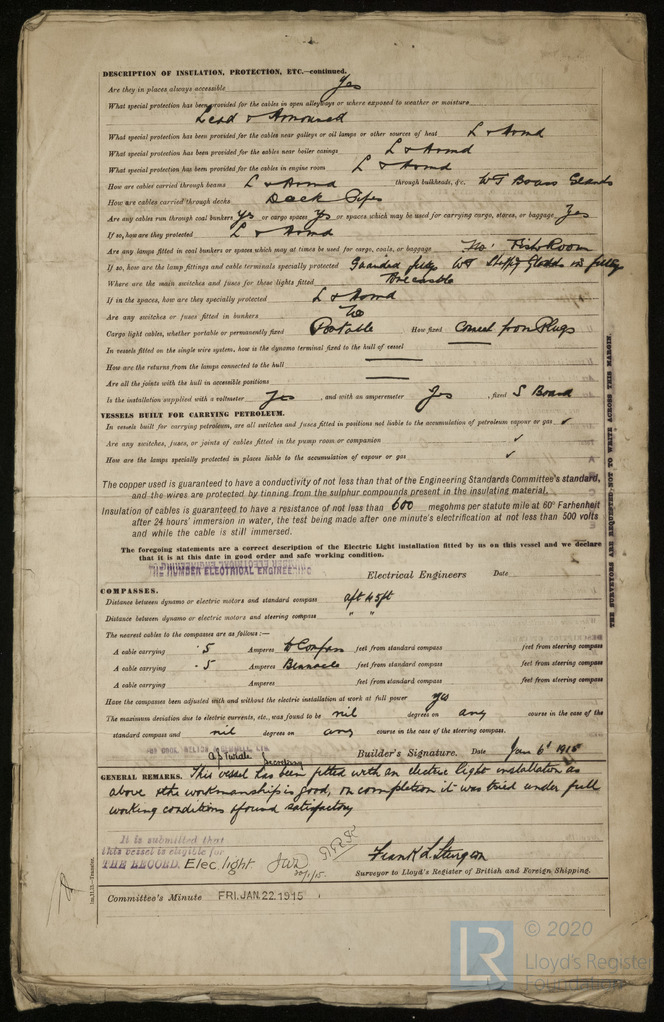 DESCRIPTION OF INSULATION, PROTECTION, ETC.—continued.
Are they in places always accessible Yes
What special protection has been provided for the cables in open alleyways or where exposed to weather or moisture
Lead & Armoured
What special protection has been provided for the cables near galleys or oil lamps or other sources of heat L & Armd
What special protection has been provided for the cables near boiler casings L & Armd
What special protection has been provided for the cables in engine room L & Armd
How are cables carried through beams L & Armd through bulkheads, &c. WT Brass Glands
How are cables carried through decks Deck Pipes
Are any cables run through coal bunkers Yes or cargo spaces Yes or spaces which may be used for carrying cargo, stores, or baggage Yes
If so, how are they protected L & Armd
Are any lamps fitted in coal bunkers or spaces which may at times be used for cargo, coals, or baggage Fish Room
If so, how are the lamp fittings and cable terminals specially protected Guarded WT
Where are the main switches and fuses for these lights fitted Accessible
If in the spaces, how are they specially protected L & Armd
Are any switches or fuses fitted in bunkers No
Cargo light cables, whether portable or permanently fixed Portable How fixed Connect from Plugs
In vessels fitted on the single wire system, how is the dynamo terminal fixed to the hull of vessel
How are the returns from the lamps connected to the hull
Are all the joints with the hull in accessible positions
Is the installation supplied with a voltmeter Yes , and with an amperemeter Yes , fixed S Board
VESSELS BUILT FOR CARRYING PETROLEUM.
In vessels built for carrying petroleum, are all switches and fuses fitted in positions not liable to the accumulation of petroleum vapour or gas ✓
Are any switches, fuses, or joints of cables fitted in the pump room or companion ✓
How are the lamps specially protected in places liable to the accumulation of vapour or gas ✓
The copper used is guaranteed to have a conductivity of not less than that of the Engineering Standards Committee's standard,
and the wires are protected by tinning from the sulphur compounds present in the insulating material.
Insulation of cables is guaranteed to have a resistance of not less than 600 megohms per statute mile at 60° Farhenheit
after 24 hours' immersion in water, the test being made after one minute's electrification at not less than 500 volts
and while the cable is still immersed.
The foregoing statements are a correct description of the Electric Light installation fitted by us on this vessel and we declare
that it is at this date in good order and safe working condition.
THE HUMBER ELECTRICAL ENGINEERING
Electrical Engineers Date
COMPASSES.
Distance between dynamo or electric motors and standard compass aft 45ft
Distance between dynamo or electric motors and steering compass " "
The nearest cables to the compasses are as follows:—
A cable carrying .5 Amperes Compass feet from standard compass feet from steering compass
A cable carrying .5 Amperes Binnacle feet from standard compass feet from steering compass
A cable carrying Amperes feet from standard compass feet from steering compass
Have the compasses been adjusted with and without the electric installation at work at full power yes
The maximum deviation due to electric currents, etc., was found to be nil degrees on any course in the case of the
standard compass and nil degrees on any course in the case of the steering compass.
FOR COOK, WELTON & GEMMELL, LTD.
Secretary
Builder's Signature. Date Jan 6th 1915
GENERAL REMARKS. This vessel has been fitted with an electric light installation as
above & the workmanship is good, on completion it was tried under full
working conditions & found satisfactory
It is submitted that
this vessel is eligible for
THE RECORD. Elec light
20/1/15.
Frank L. Sturgeon
Surveyor to Lloyd's Register of British and Foreign Shipping.
Committee's Minute FRI. JAN. 22. 1915
THE SURVEYORS ARE REQUESTED NOT TO WRITE ACROSS THIS MARGIN.
© 2020
LR
Lloyd's Register
Foundation